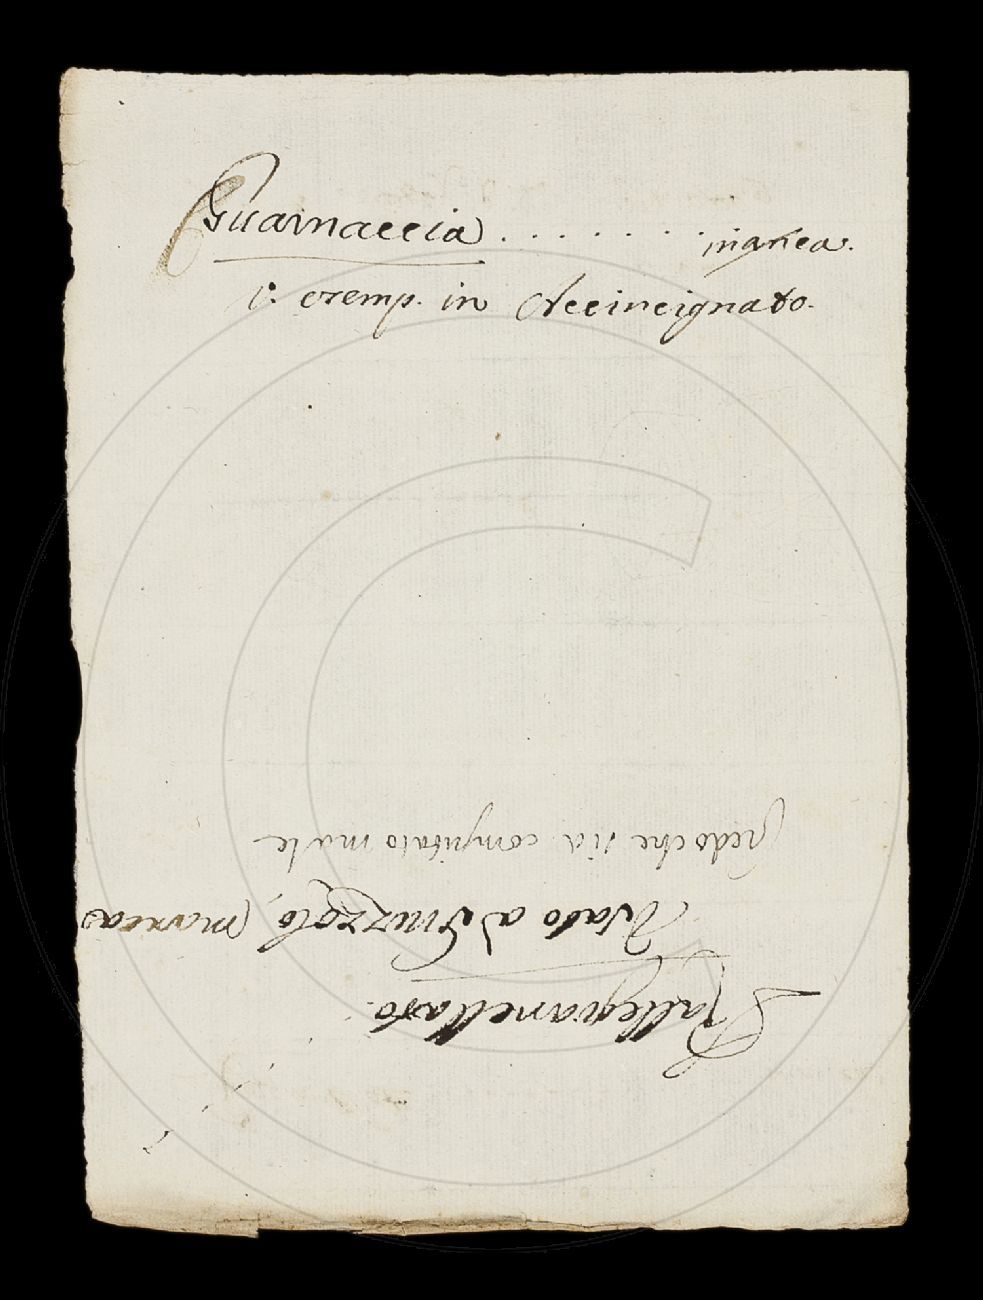 Guarnaccia ........ manca.
v. esemp. in Accincignato.
Rattequanellato.
Usato a Spruzzolo, manca
Credo che sia computato male